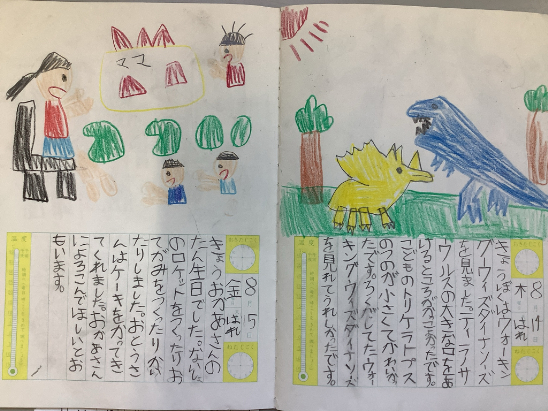 8 14
木 はれ
きょうぼくはウォーキン
グ・ウィズダイナソーズ
を見ました。ティラノサ
ウルスの大きな口をあ
けるところがかっこよかったです。
こどものトリケラトプス
のつのが小さくてかわいか
ったです。ウォー
キング・ウィズダイナソーズ
を見れてうれしかったです。
ママ
8 15
金 はれ
きょうおかあさんの
たん生日でした。
のロケットをつくったりお
てがみをつくったりかざっ
たりしました。おとうさ
んはケーキをかってき
てくれました。おかあさん
によろこんでほしいとお
もいます。